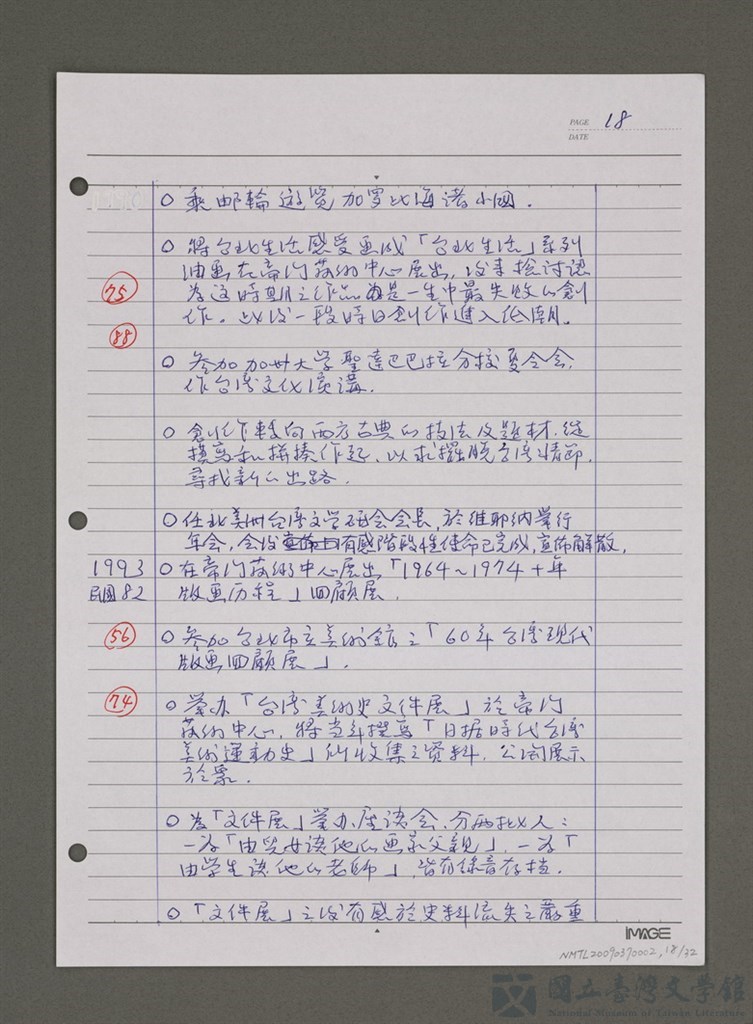 PAGE 18
DATE
○ 乘邮輪遊览加罗比海诸小國.
○ 將台北生活感受画成「台北生活」系列
油画在帝门芸術中心展出,後来檢讨認
75 为这時期之作品是一生中最失敗的創
作。以後一段時日創作進入低潮。
88
○ 参加加州大学聖達巴巴拉分校夏令会,
作台湾文化演講.
○ 創作轉向西方古典的技法及題材,從
摸寫和拼揍作起,以求擺脫台湾情節,
尋找新的出路.
○ 任北美州台湾文学研会会長,於維耶纳举行
年会,会後有感階段性使命已完成,宣佈解散,
1993 ○ 在帝门芸術中心展出「1964~1974十年
民國82 版画历程」回顧展.
56 ○ 参加台北市立美術舘之「60年台湾現代
版画回顧展」.
74 ○ 举办「台湾美術史文件展」於帝门
芸術中心,將当年撰寫「日据時代台湾
美術運動史」所收集之資料,公開展示
於眾.
○ 为「文件展」举办座谈会,分两批人:
一为「由兒女談他的画家父親」,一为「
由学生談他的老師」皆有錄音存档.
○ 「文件展」之後有感於史料流失之嚴重
IMAGE
NMTL20090370002,18/32
國立臺灣文學館
National Museum of Taiwan Literature